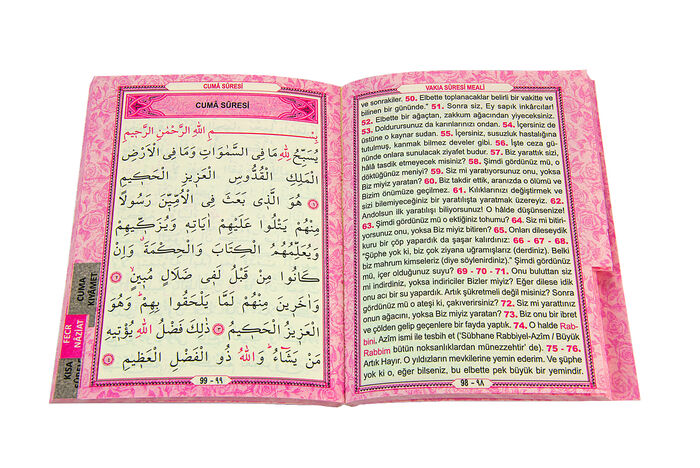 VAKIA SÛRESİ MEALİ
ve sonrakiler. 50. Elbette toplanacaklar belirli bir vakitte ve
bilinen bir gününde.” 51. Sonra siz, Ey sapık inkârcılar!
52. Elbette bir ağaçtan, zakkum ağacından yiyeceksiniz.
53. Doldurursunuz da karınlarınızı ondan. 54. İçersiniz de
üstüne o kaynar sudan. 55. İçersiniz, susuzluk hastalığına
tutulmuş, kanmak bilmez develer gibi. 56. İşte ceza gü-
nünde onlara sunulacak ziyafet budur. 57. Biz yarattık sizi,
hâlâ tasdik etmeyecek misiniz? 58. Şimdi gördünüz mü, o
döktüğünüz meniyi? 59. Siz mi yaratıyorsunuz onu, yoksa
Biz miyiz yaratan? 60. Biz takdir ettik, aranızda o ölümü ve
Bizim önümüze geçilmez. 61. Kılıklarınızı değiştirmek ve
sizi bilemiyeceğiniz bir yaratılışta yaratmak üzereyiz. 62.
Andolsun ilk yaratılışı biliyorsunuz! O hâlde düşünsenize!
63. Şimdi gördünüz mü o ektiğiniz tohumu? 64. Siz mi bitiri-
yorsunuz onu, yoksa Biz miyiz bitiren? 65. Onları dileseydik
kuru bir çöp yapardık da şaşar kalırdınız: 66 - 67 - 68.
“Şüphe yok ki, biz çok ziyana uğramışlarız (derdiniz). Belki
biz mahrum kimseleriz (diye söylenirdiniz).” Şimdi gördünüz
mü, içer olduğunuz suyu? 69 - 70 - 71. Onu buluttan siz
mi indirdiniz, yoksa indiriciler Bizler miyiz? Eğer dilesek idik
onu acı bir su yapardık. Artık şükretmeli değil misiniz? Sonra
gördünüz mü o ateşi ki, çakıverirsiniz? 72. Siz mi yarattınız
onun ağacını, yoksa Biz miyiz yaratan? 73. Biz onu bir ibret
ve çölden gelip geçenlere bir fayda yaptık. 74. O halde Rab-
bini. Azîm ismi ile tesbih et (‘Sübhane Rabbiyel-Azîm / Büyük
Rabbim bütün noksanlıklardan münezzehtir’ de). 75 - 76.
Artık Hayır. O yıldızların mevkilerine yemin ederim. Ve şüphe
yok ki o, eğer bilseniz, bu elbette pek büyük bir yemindir.
98 - ٩٨
CUMÂ SÛRESİ
CUMÂ SÛRESİ
بِسْمِ اللّٰهِ الرَّحْمٰنِ الرَّحِيمِ
يُسَبِّحُ لِلّٰهِ مَا فِي السَّمٰوَاتِ وَمَا فِي الْاَرْضِ
الْمَلِكِ الْقُدُّوسِ الْعَزِيزِ الْحَكِيمِ ﴿١﴾
هُوَ الَّذِي بَعَثَ فِي الْاُمِّيّٖنَ رَسُولًا
مِنْهُمْ يَتْلُوا عَلَيْهِمْ اٰيَاتِهِ وَيُزَكِّيهِمْ
وَيُعَلِّمُهُمُ الْكِتَابَ وَالْحِكْمَةَ وَاِنْ
كَانُوا مِنْ قَبْلُ لَفِي ضَلَالٍ مُبِينٍ ﴿٢﴾
وَاٰخَرِينَ مِنْهُمْ لَمَّا يَلْحَقُوا بِهِمْ وَهُوَ
الْعَزِيزُ الْحَكِيمُ ﴿٣﴾ ذٰلِكَ فَضْلُ اللّٰهِ يُؤْتِيهِ
مَنْ يَشَاءُ وَاللّٰهُ ذُو الْفَضْلِ الْعَظِيمِ ﴿٤﴾
99 - ٩٩
CUMA
KIYÂMET
FECR
NÂZİÂT
KISA